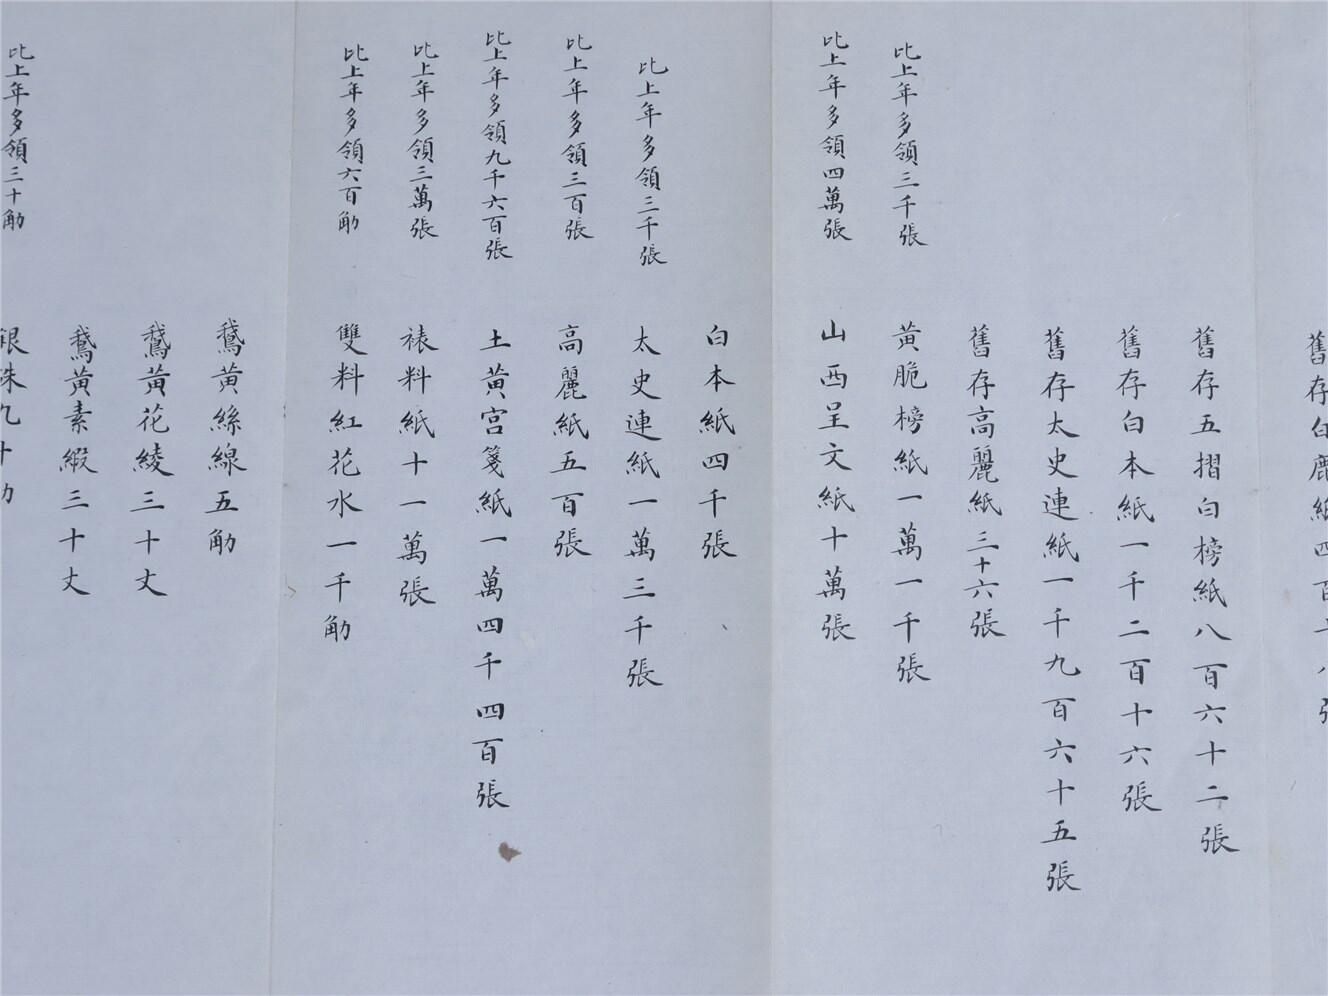 舊存白鹿紙四百
舊存五摺白榜紙八百六十二張
舊存白本紙一千二百十六張
舊存太史連紙一千九百六十五張
舊存高麗紙三十六張
比上年多領三千張
黃脆榜紙一萬一千張
比上年多領四萬張
山西呈文紙十萬張
白本紙四千張
比上年多領三千張
太史連紙一萬三千張
比上年多領三百張
高麗紙五百張
比上年多領九千六百張
土黃宮箋紙一萬四千四百張
比上年多領三萬張
裱料紙十一萬張
比上年多領六百觔
雙料紅花水一千觔
鵞黃絲線五觔
鵞黃花綾三十丈
鵞黃素緞三十丈
比上年多領三十觔
銀硃九十觔